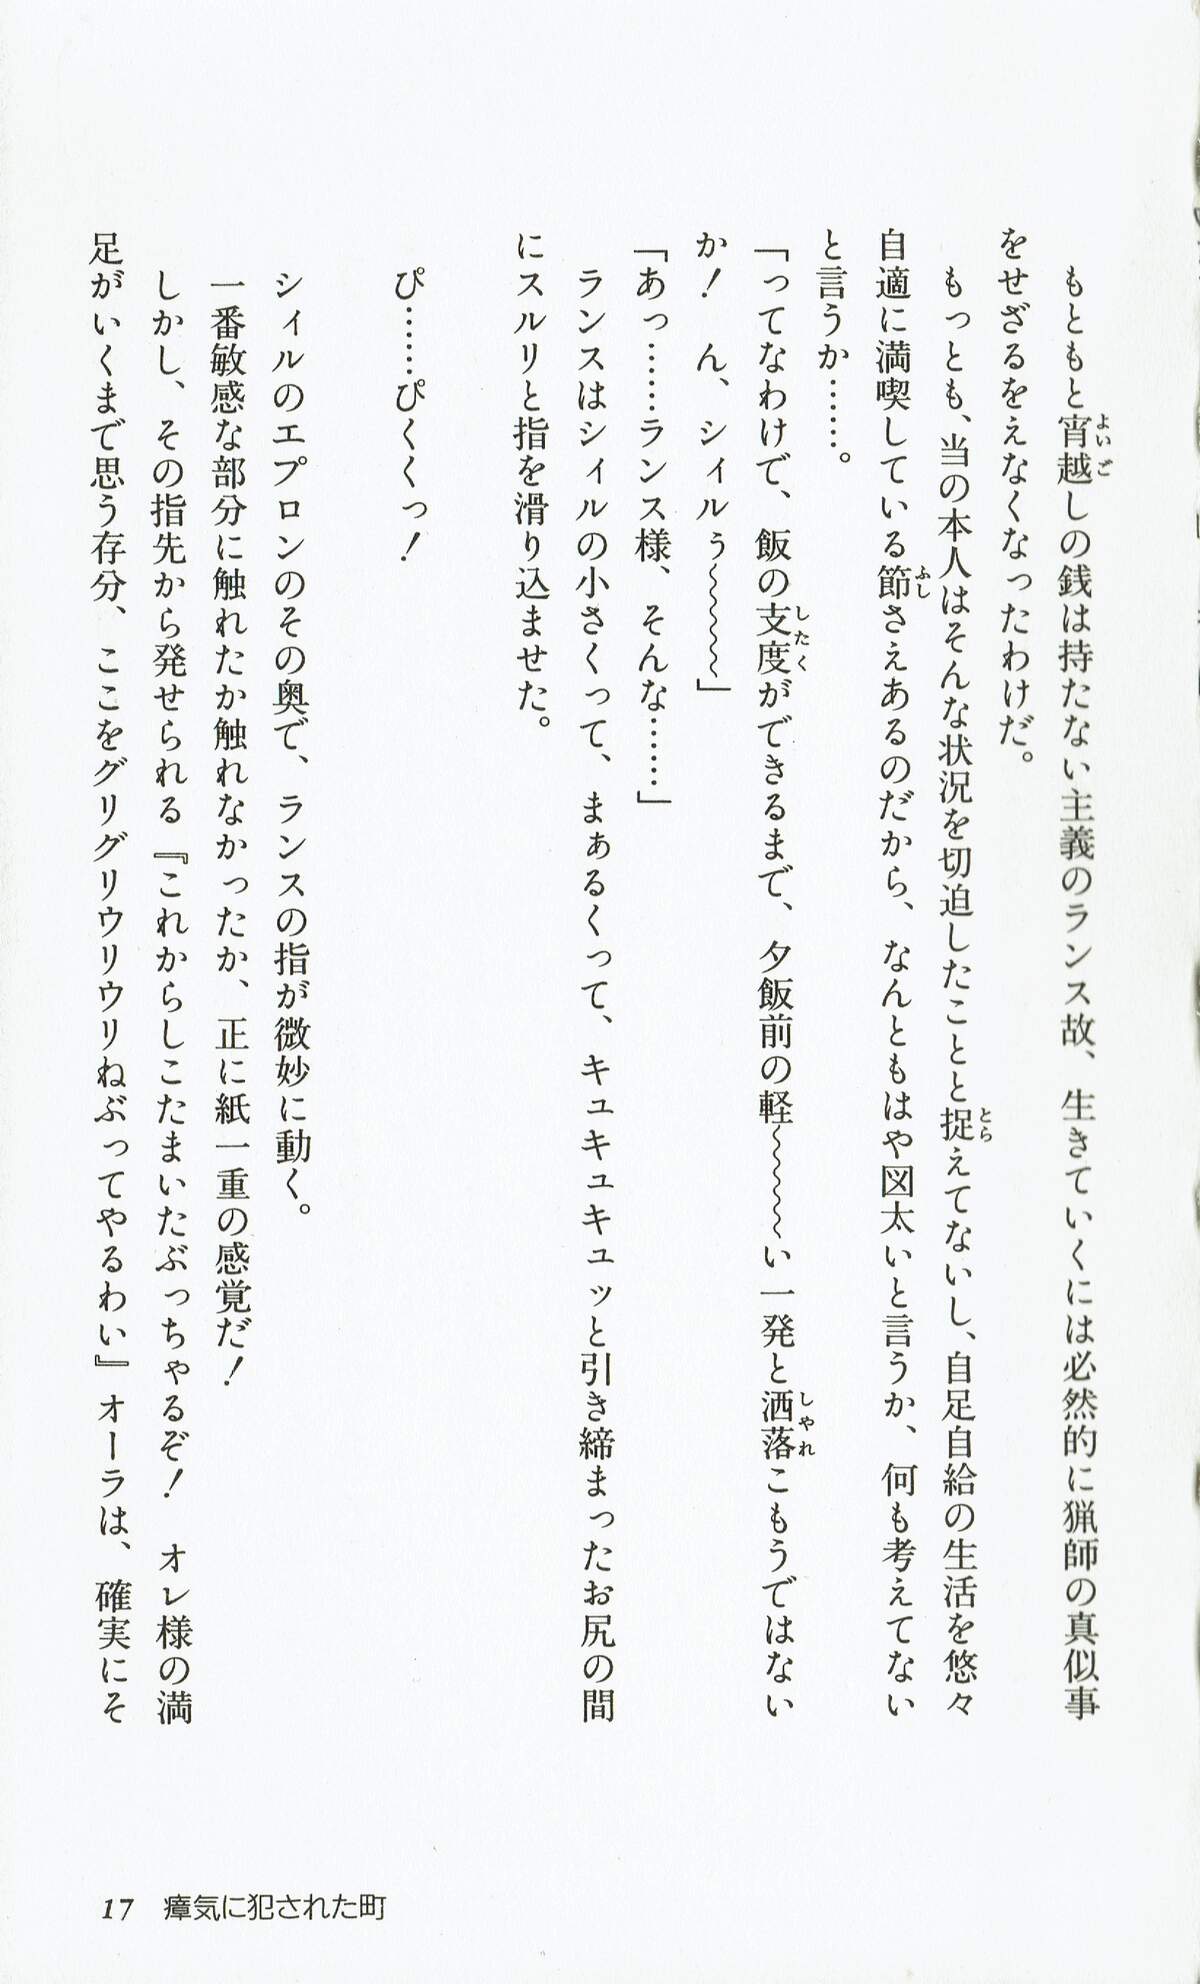 よいご
もともと宵越しの銭は持たない主義のランス故、生きていくには必然的に猟師の真似事
をせざるをえなくなったわけだ。
とら
もっとも、当の本人はそんな状況を切迫したことと捉えてないし、自足自給の生活を悠々
ふし
自適に満喫している節さえあるのだから、なんともはや図太いと言うか、何も考えてない
と言うか……。
したく しゃれ
「ってなわけで、飯の支度ができるまで、夕飯前の軽～～～～い一発と洒落こもうではない
か！　ん、シィルぅ～～～～～」
「あっ……ランス様、そんな……」
ランスはシィルの小さくって、まぁるくって、キュキュキュッと引き締まったお尻の間
にスルリと指を滑り込ませた。
ぴ……ぴくくっ！
シィルのエプロンのその奥で、ランスの指が微妙に動く。
一番敏感な部分に触れたか触れなかったか、正に紙一重の感覚だ！
しかし、その指先から発せられる『これからしこたまいたぶっちゃるぞ！　オレ様の満
足がいくまで思う存分、ここをグリグリウリウリねぶってやるわい』オーラは、確実にそ
17　瘴気に犯された町